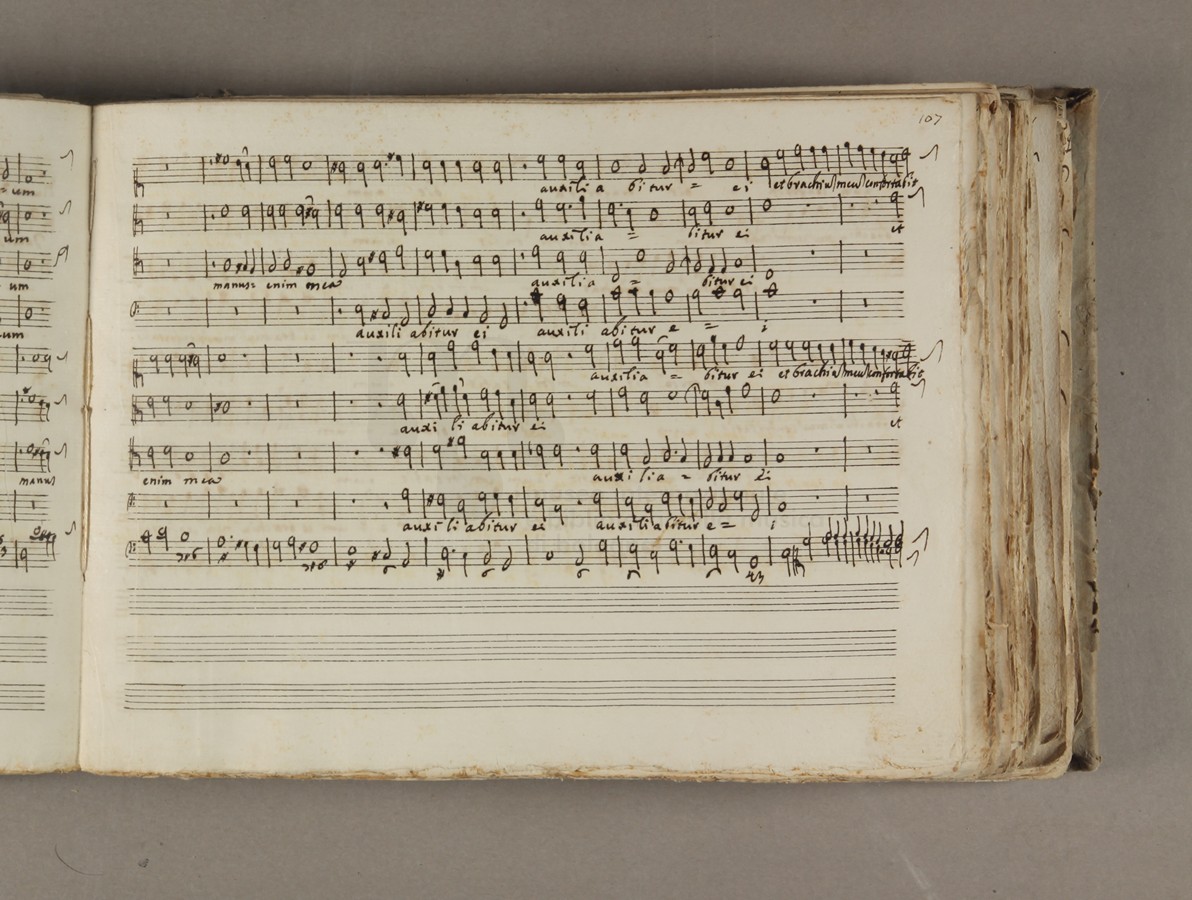 107
= um
auxilia bitur = ei et brachiu meu confortabit
um
auxilia = bitur ei et
um
manus= enim mea auxilia = bitur ei
cum
auxili abitur ei auxili abitur e = i
auxilia = bitur ei et brachiu meu confortabit
auxi li abitur ei et
manus
enim mea auxi lia = bitur ei
auxi li abitur ei auxiliabitur e = i